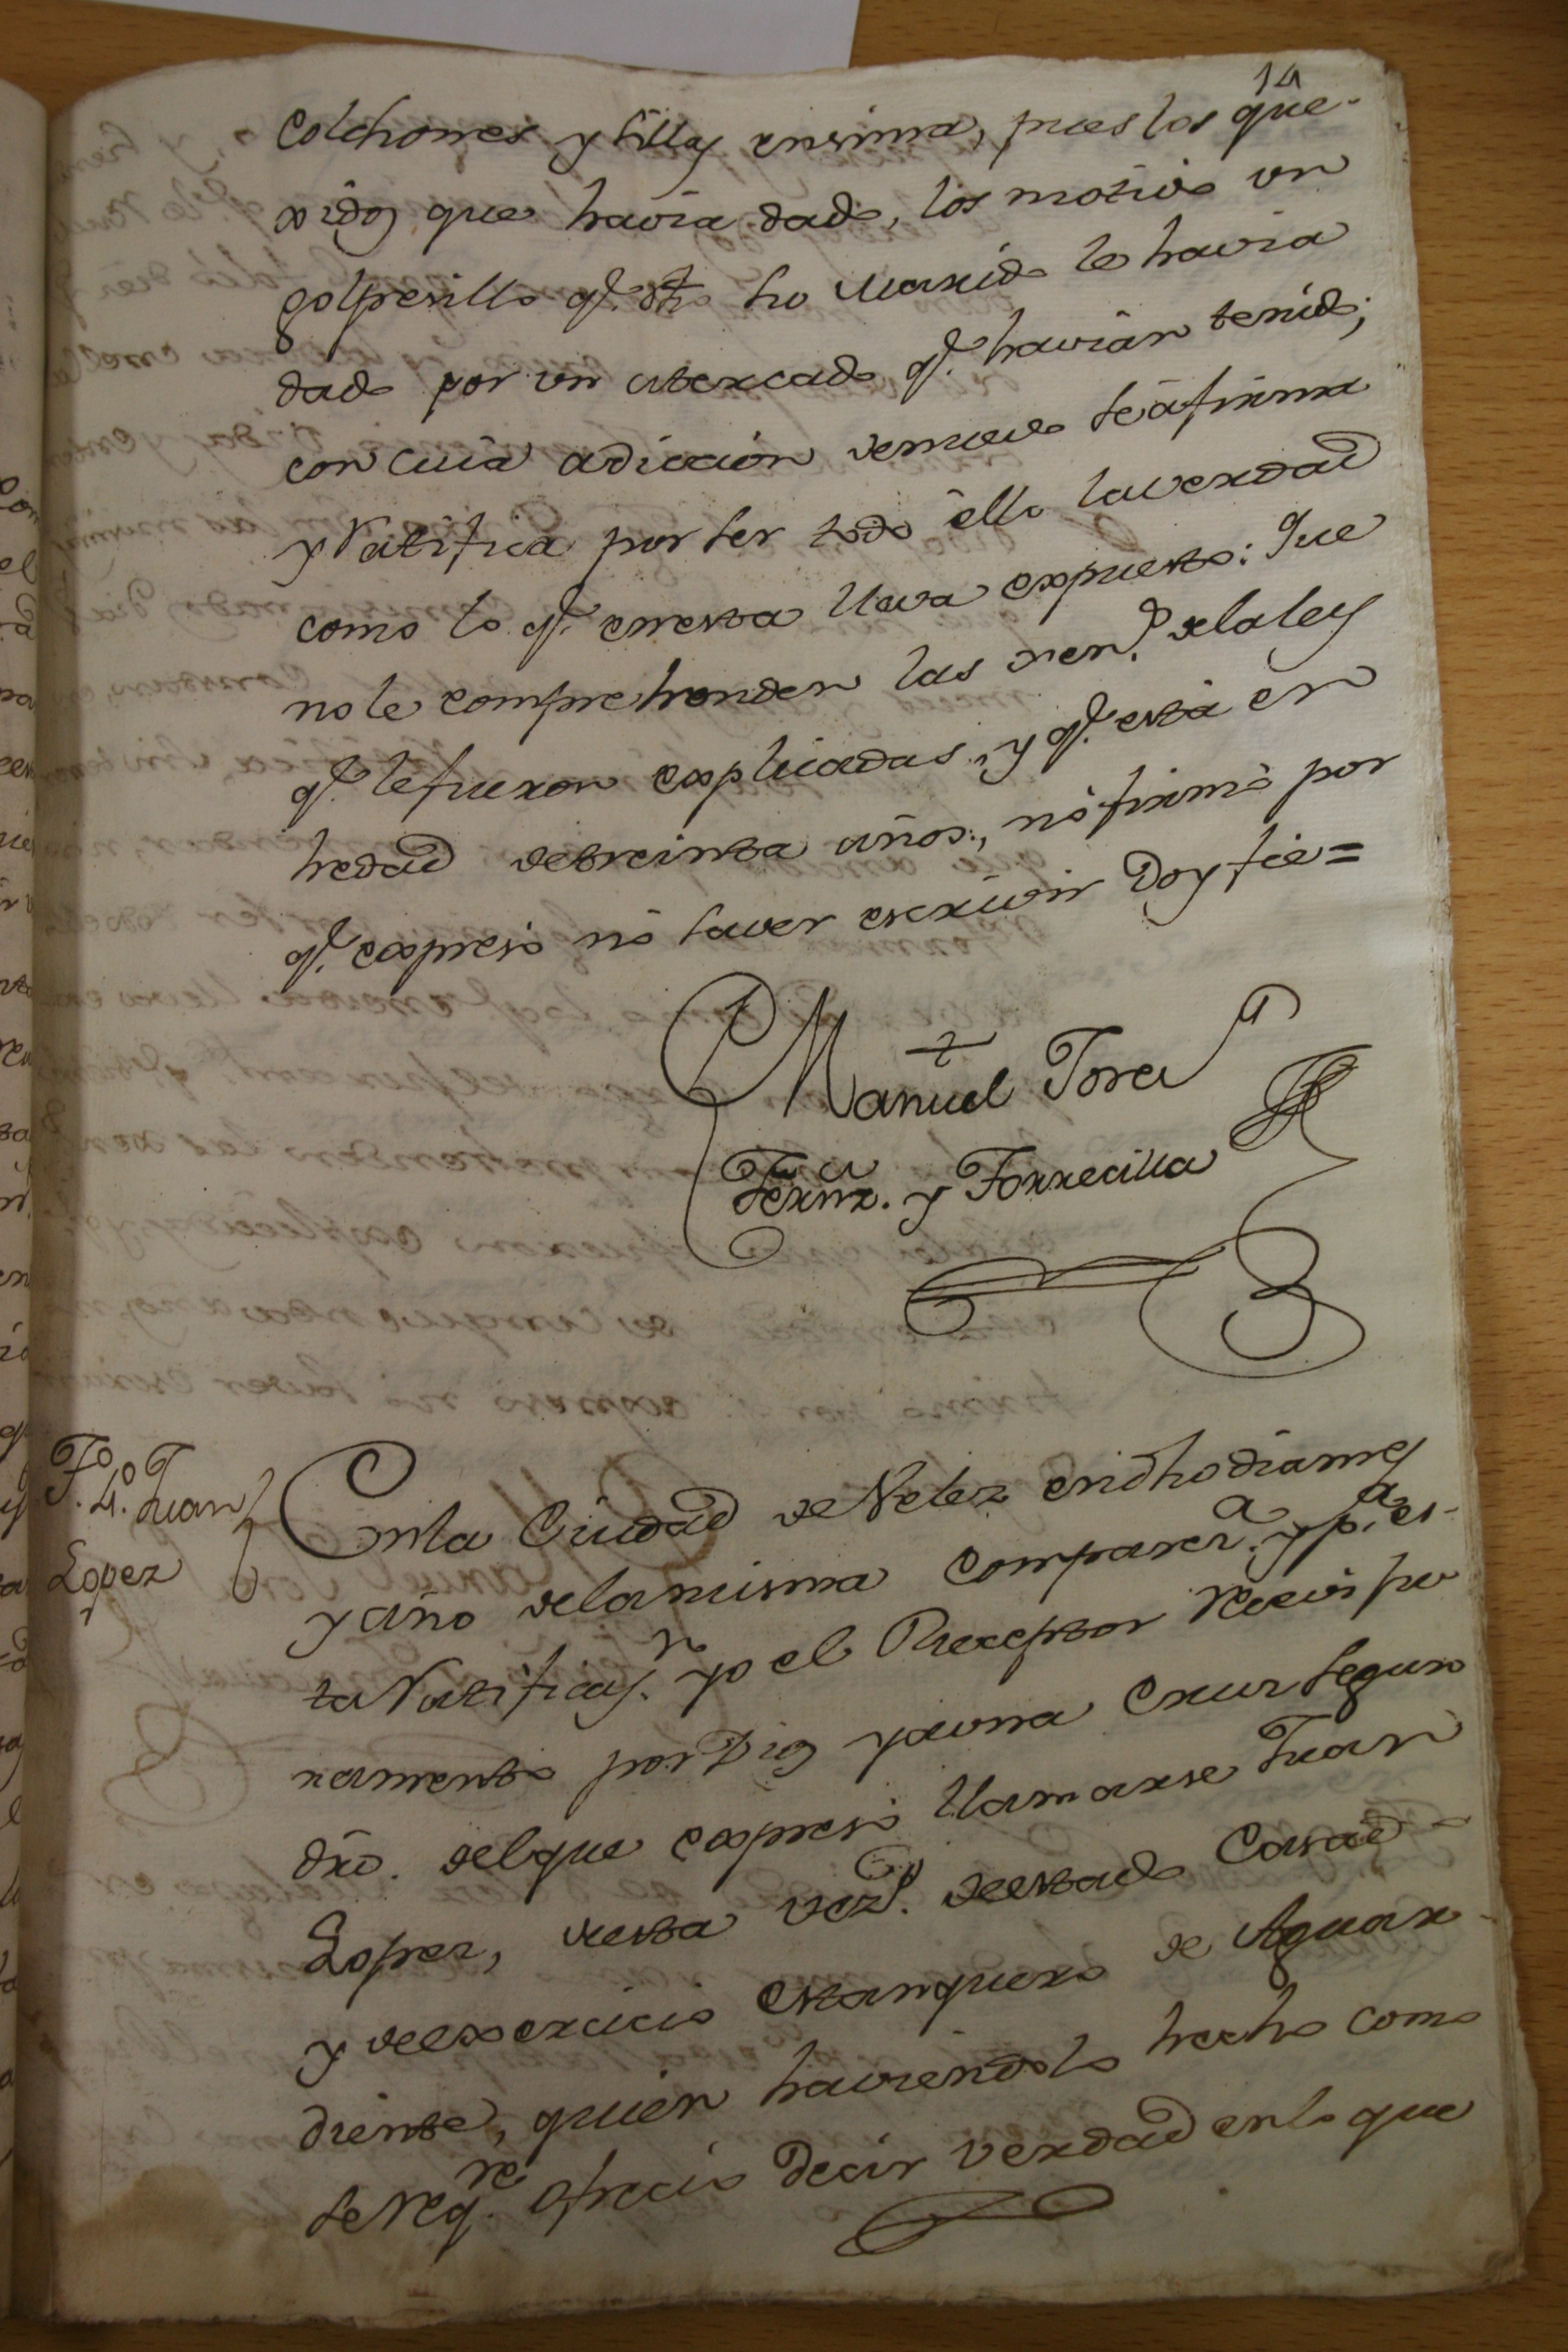 14
colchones y sillas ensima, pues los que-
xidos que havia dado, los motivo un
golpesillo q.e dho su Marido le havia
dado por un altercado q.e havian tenido;
con cuia adiccion de nuevo se afirma
y Ratifica por ser todo ello la verdad
como lo q.e en esta lleva expuesto: Que
no le comprehenden las gen.s de la ley
q.e le fueron explicadas, y q.e está en
hedad de treinta años, no firmó por
q.e expresó no saver escrivir Doy fee =
Manuel Tora
Fernz. y Torrecilla
T.o 4.o Juan
Lopez
En la Ciudad de Velez en dho dia mes
y año de la misma comparez.a y p.a es-
ta Ratificaz.n yo el Rezeptor Recivi ju
ramento por Dios y a una Cruz segun
dro. del que expresó llamarse Juan
Lopez, de esta vez.d de estado Casado
y de exercicio estanquero de Aguar-
diente, quien haviendolo hecho como
se Req.re ofrecio decir verdad en lo que